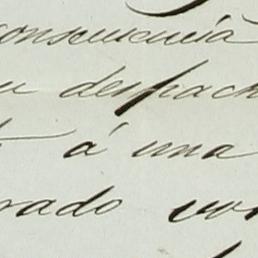 consecuencia
u despach
á una
rado vo